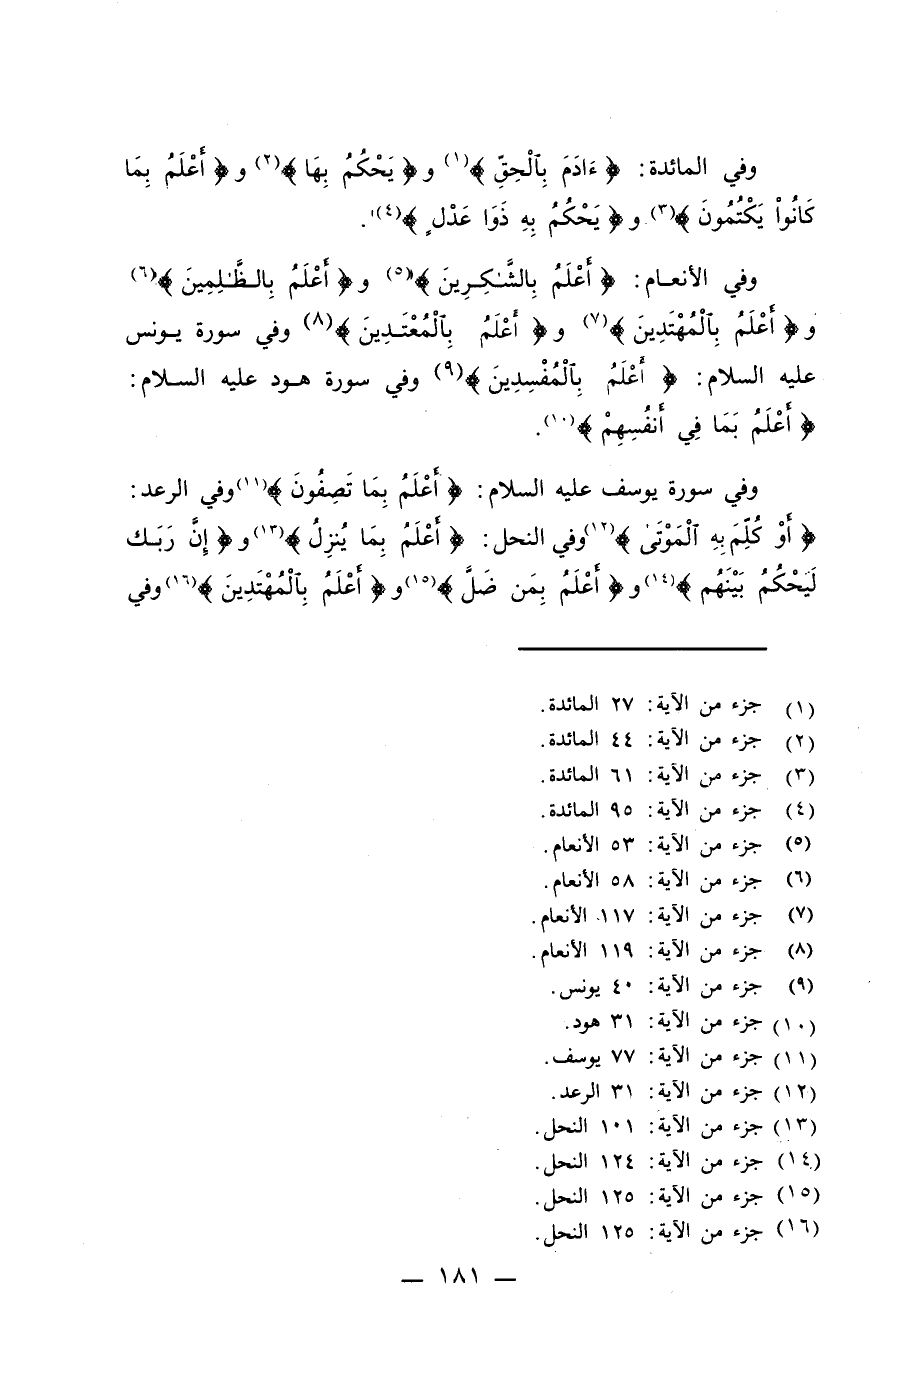 وفي المائدة: ﴿ ءَادَمَ بِٱلْحِقِّ ﴾(١) و ﴿ يَحْكُمُ بِهَا ﴾(٢) و ﴿ أَعْلَمُ بِمَا
كَانُواْ يَكْتُمُونَ ﴾(٣) و ﴿ يَحْكُمُ بِهِ ذَوَا عَدْلٍ ﴾(٤).
وفي الأنعـام: ﴿ أَعْلَمُ بِالشَّـٰكِرِينَ ﴾(٥) و ﴿ أَعْلَمُ بِالـظَّـٰلِمِينَ ﴾(٦)
و ﴿ أَعْلَمُ بِٱلْمُهْتَدِينَ ﴾(٧) و ﴿ أَعْلَمُ بِٱلْمُعْتَـدِينَ ﴾(٨) وفي سورة يـونس
عليه السلام: ﴿ أَعْلَمُ بِٱلْمُفْسِدِينَ ﴾(٩) وفي سورة هـود عليه السـلام:
﴿ أَعْلَمُ بَمَا فِي أَنفُسِهِمْ ﴾(١٠).
وفي سورة يوسف عليه السلام: ﴿ أَعْلَمُ بِمَا تَصِفُونَ ﴾(١١) وفي الرعد:
﴿ أَوْ كُلِّمَ بِهِ ٱلْمَوْتَىٰ ﴾(١٢) وفي النحل: ﴿ أَعْلَمُ بِمَا يُنزِلُ ﴾(١٣) و ﴿ إِنَّ رَبَـك
لَيَحْكُمُ بَيْنَهُم ﴾(١٤) و ﴿ أَعْلَمُ بِمَن ضَلَّ ﴾(١٥) و ﴿ أَعْلَمُ بِٱلْمُهْتَدِينَ ﴾(١٦) وفي
(١) جزء من الآية: ٢٧ المائدة.
(٢) جزء من الآية: ٤٤ المائدة.
(٣) جزء من الآية: ٦١ المائدة.
(٤) جزء من الآية: ٩٥ المائدة.
(٥) جزء من الآية: ٥٣ الأنعام.
(٦) جزء من الآية: ٥٨ الأنعام.
(٧) جزء من الآية: ١١٧ الأنعام.
(٨) جزء من الآية: ١١٩ الأنعام.
(٩) جزء من الآية: ٤٠ يونس.
(١٠) جزء من الآية: ٣١ هود.
(١١) جزء من الآية: ٧٧ يوسف.
(١٢) جزء من الآية: ٣١ الرعد.
(١٣) جزء من الآية: ١٠١ النحل.
(١٤) جزء من الآية: ١٢٤ النحل.
(١٥) جزء من الآية: ١٢٥ النحل.
(١٦) جزء من الآية: ١٢٥ النحل.
— ١٨١ —